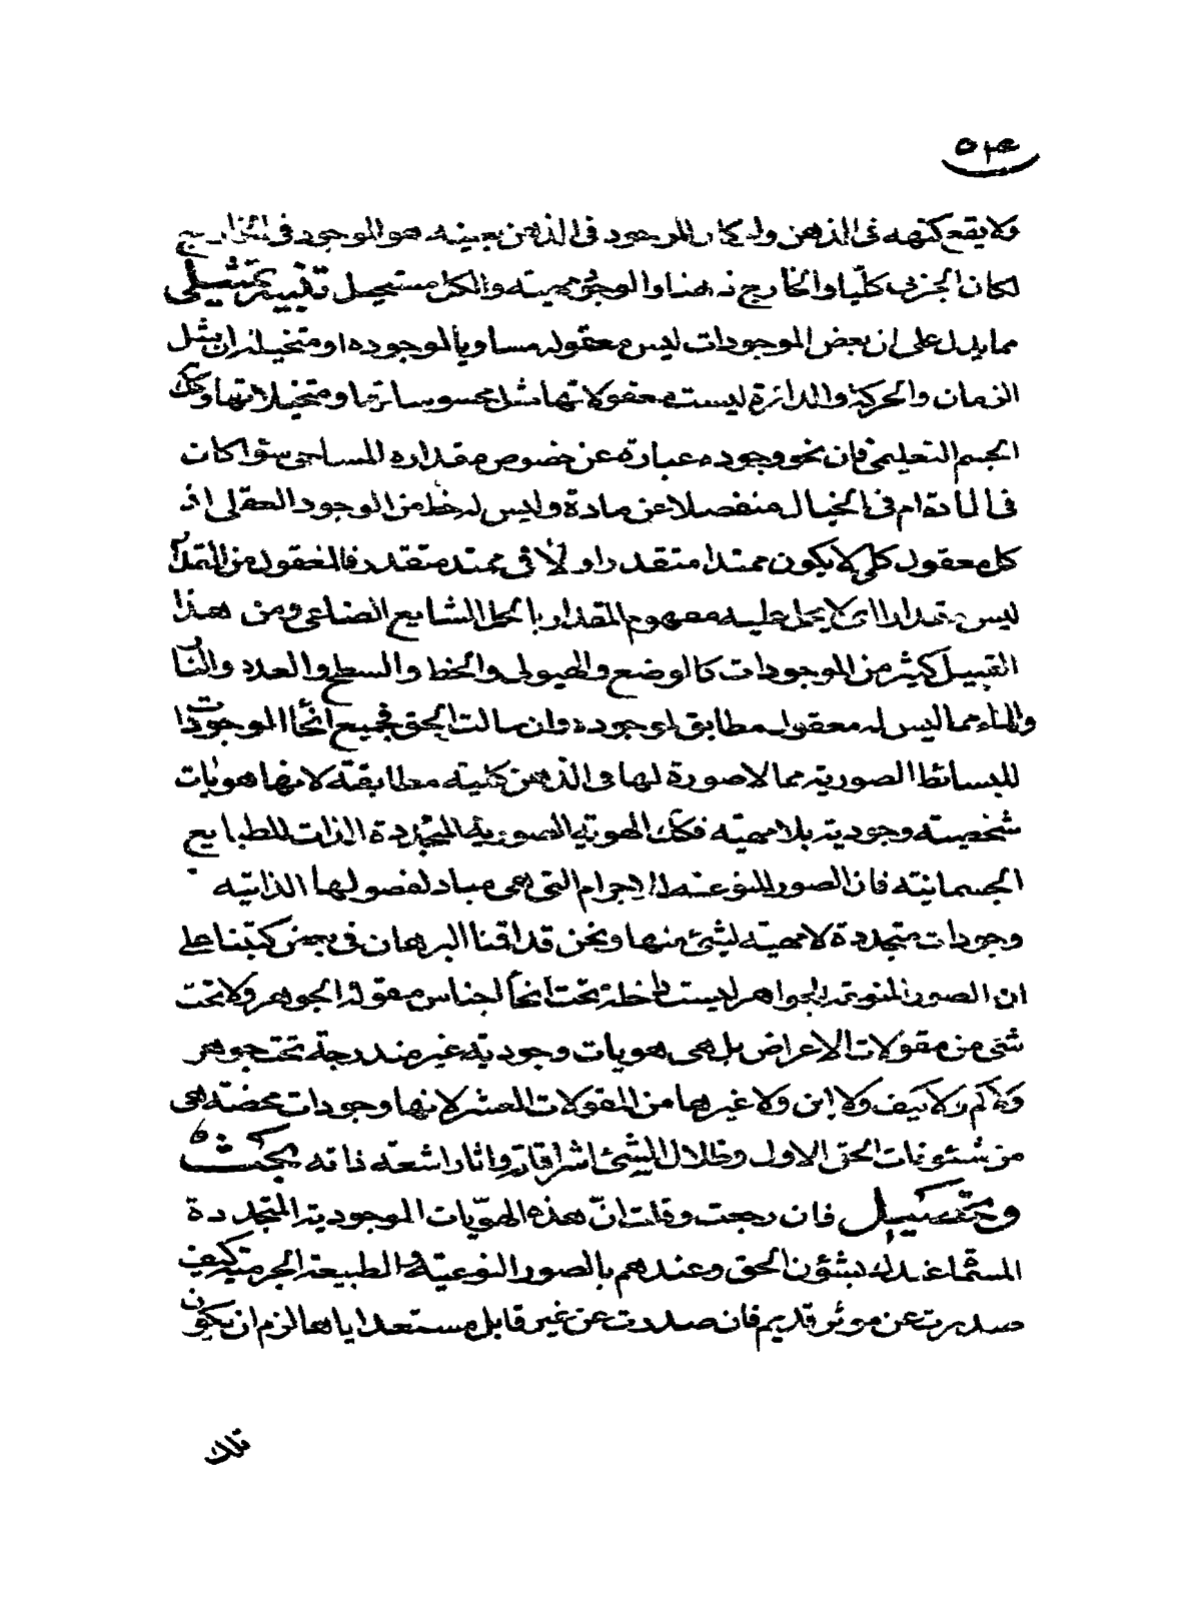 ولا يقع كنهه فى الذهن ولو كان الموجود فى الذهن بعينه هو الموجود فى الخارج
لكان الجزئى كليا والخارج ذهنا والوجود مهية والكل مستحيل تنبيه تمثيلى
مما يدل على ان بعض الموجودات ليس معقوله مساويا لموجوده او متخيله ان مثل
الزمان والحركة والدائرة ليست معقولاتها مثل محسوساتها ومتخيلاتها وكك
الجسم التعليمى فان نحو وجوده عبارة عن خصوص مقداره المساحى سواء كانت
فى المادة ام فى الخيال منفصلا عن مادة وليس له حظ من الوجود العقلى اذ
كل معقول كلى لا يكون ممتدا متقدرا ولا فى ممتد متقدر فالمعقول من المقدار
ليس مقدارا اى لا يحمل عليه مفهوم المقدار بالحمل الشايع الصناعى ومن هذا
القبيل كثير من الموجودات كالوضع والهيولى والخط والسطح والعدد والنار
والماء مما ليس له معقول مطابق لموجوده وان سالت الحق فجميع انحاء الموجودات
للبسائط الصورية مما لا صورة لها فى الذهن كلية مطابقة لانها هويات
شخصية وجودية بلا مهية فكك الهوية الصورية المتجددة الذات للطبايع
الجسمانية فان الصور النوعية للاجرام التى هى مباد لفصولها الذاتية
وجودات متجددة لا مهية لشئ منها ونحن قد اقمنا البرهان فى بعض كتبنا على
ان الصور المنوعة للجواهر ليست داخلة تحت انحاء اجناس مقولة الجوهر ولا تحت
شئ من مقولات الاعراض بل هى هويات وجودية غير مندرجة تحت جوهر
ولا كم ولا كيف ولا اين ولا غيرها من المقولات العشر لانها وجودات محضة هى
من شئونات الحق الاول وظلال اشراقاته واثار اشعة ذاته بحث
وتحصيل فان رجعت وقلت ان هذه الهويات الوجودية المتجددة
المسماة عندك بشئون الحق وعندهم بالصور النوعية والطبيعة الجرمية كيف
صدرت عن موثر قديم فان صدرت عن غير قابل مستعد اياها لزم ان يكون